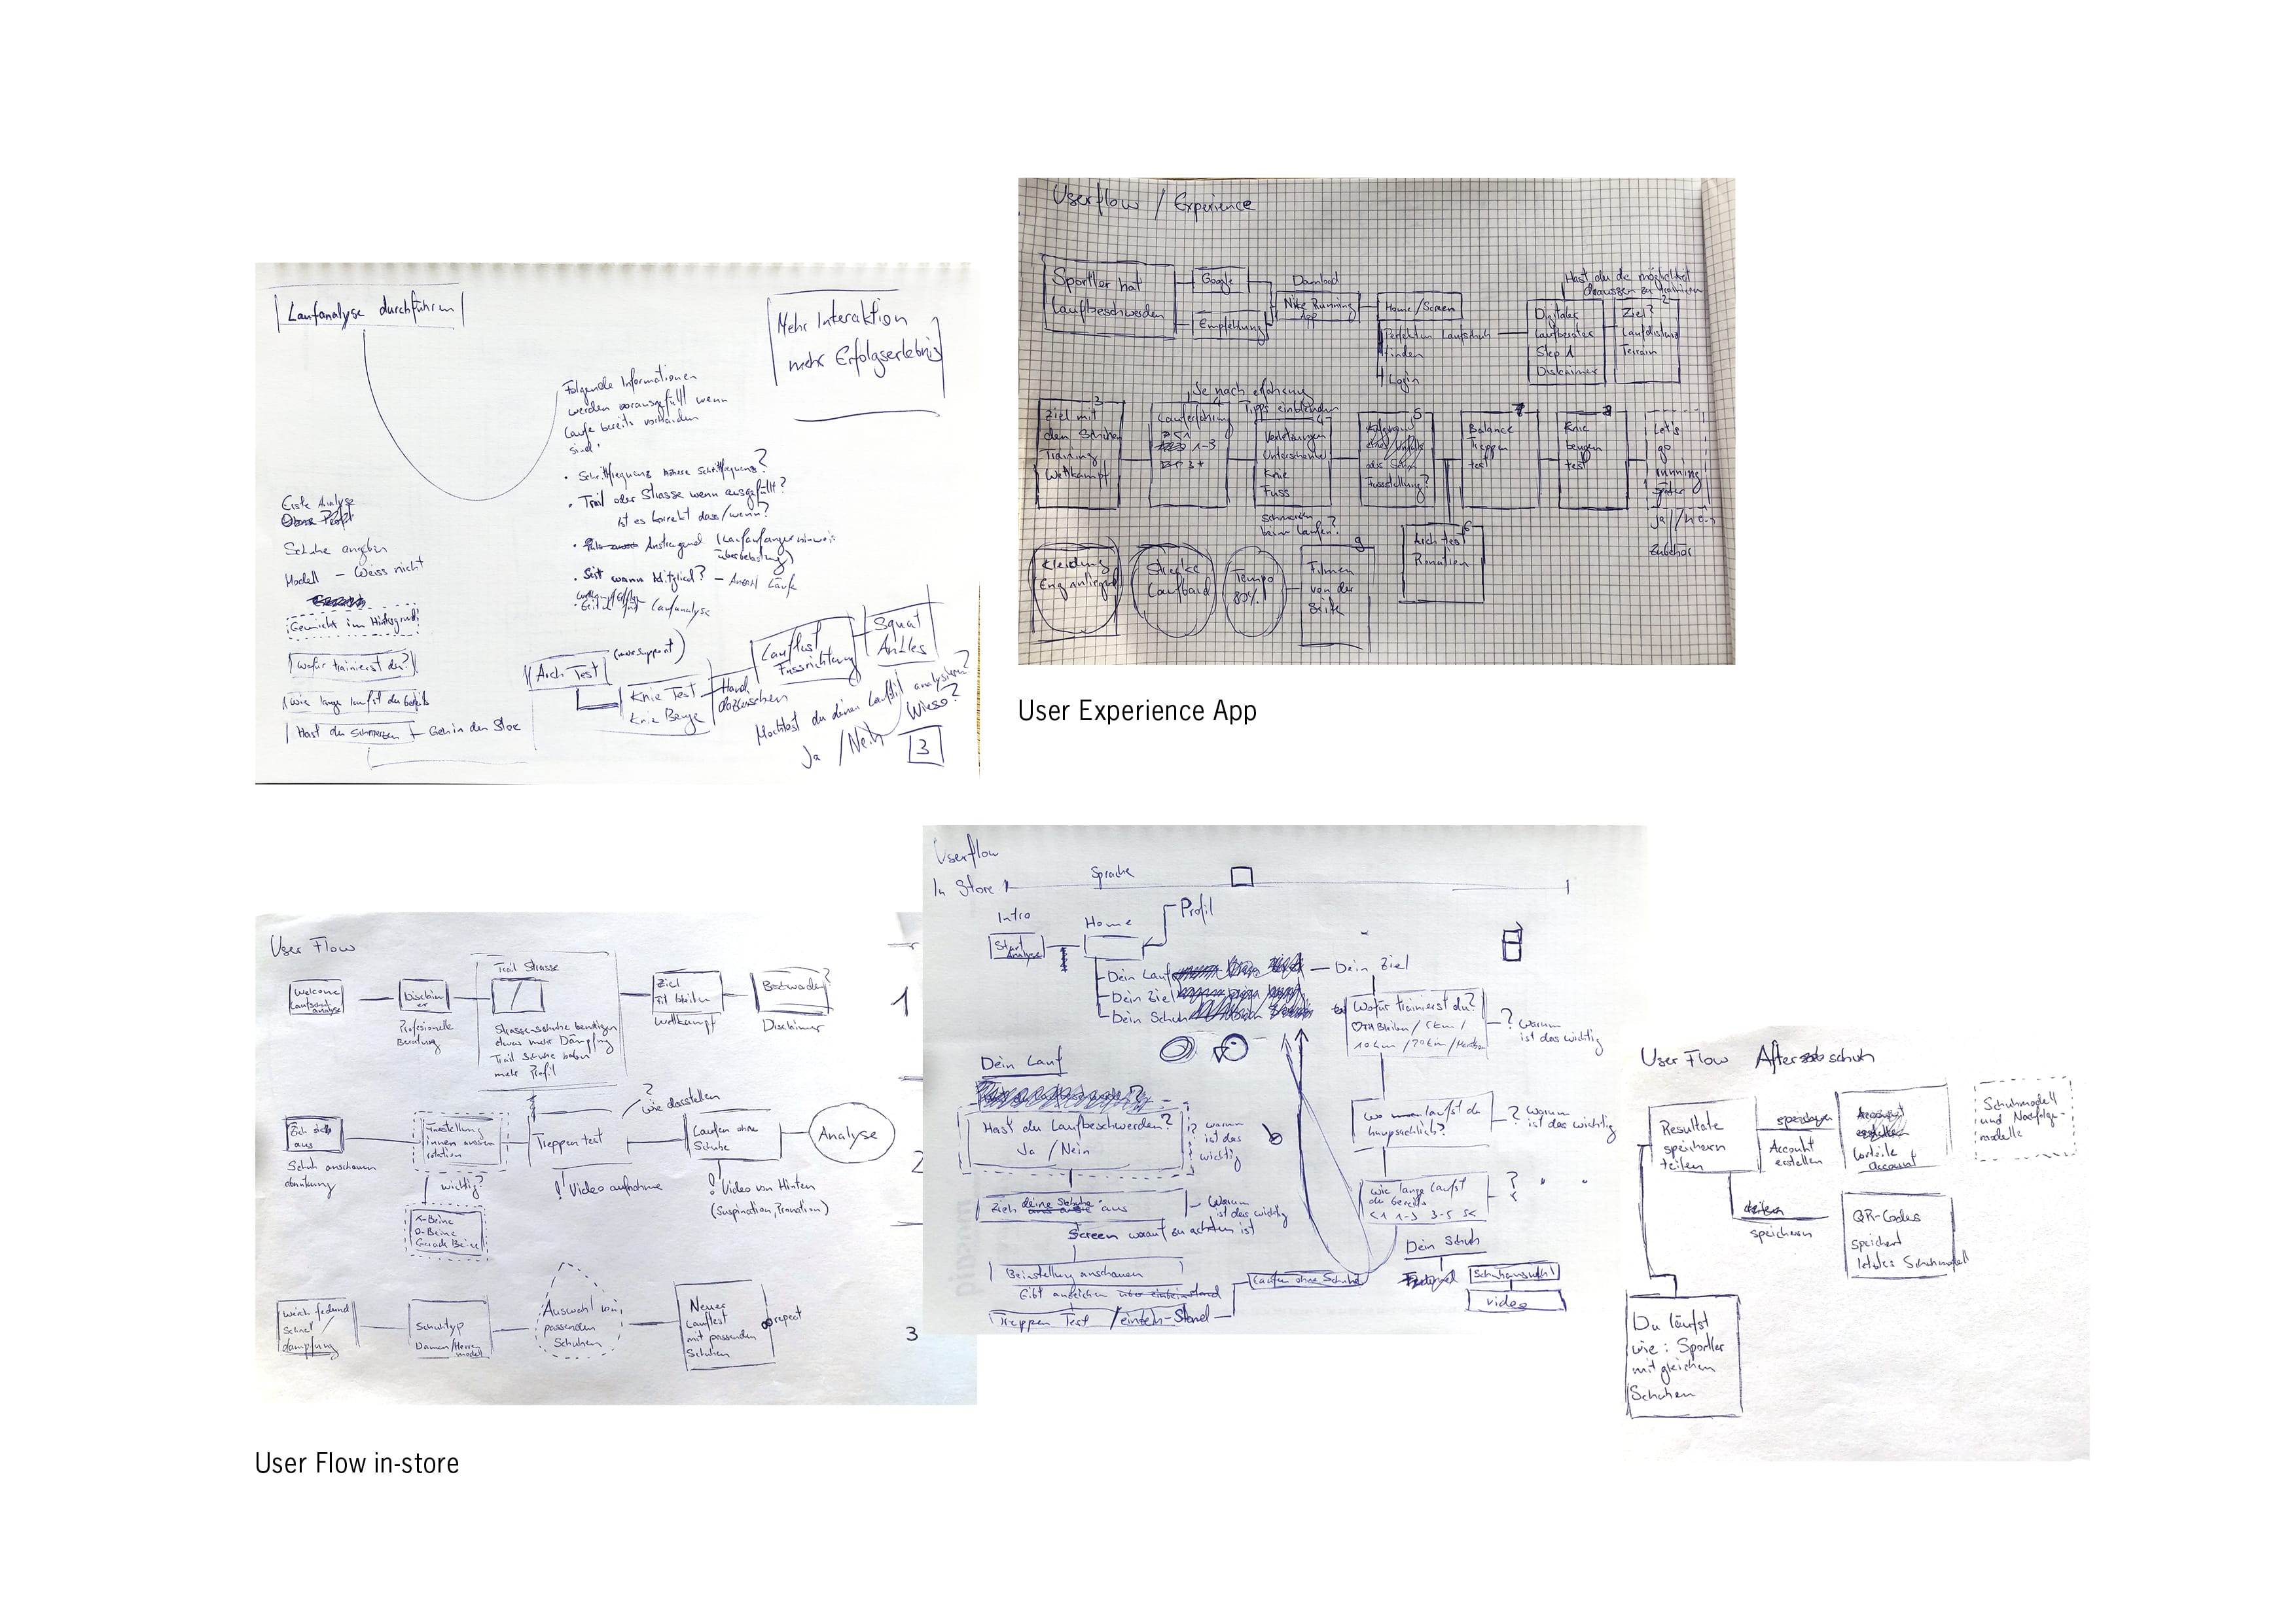 Laufanalyse durchführen
Mehr Interaktion
mehr Erfolgserlebnis
Folgende Informationen
werden vorausgefüllt wenn
Läufe bereits vorhanden
sind:
• Schrittfrequenz höhere Schrittfrequenz?
• Trail oder Strasse wenn ausgefüllt?
Ist es korrekt dass/wenn?
Anstrengend
überbelastung)
• Seit wann Mitglied? – Anzahl Läufe
Laufanalyse
Erste Analyse
Schuhe angeben
Modell – Weiss nicht
Gewicht im Hintergrund
Wofür trainierst du?
Wie lange läufst du bereits
Hast du schmerzen – Geh in den Store
Arch Test
Knie Test
Knie Beuge
Lauftest
Fussrichtung
Squat
Ankles
Möchtest du deinen Laufstil analysieren?
Wieso?
Ja / Nein
3
Userflow / Experience
Sportler hat
Laufbeschwerden
Google
Empfehlung
Download
Nike Running
App
Home/Screen
Perfekten Laufschuh
finden
Login
Hast du die möglichkeit
draussen zu trainieren
Digitaler
Laufberater
Step 1
Disclaimer
2
Ziel?
Laufdistanz
Terrain
3
Ziel mit
den Schuhen
Training
Wettkampf
Je nach erfahrung
Tipps einblenden
4
Lauferfahrung
1-3
3+
Verletzungen
Unterschenkel
Knie
Fuss
schmerzen
beim laufen?
5
Fussstellung?
7
Balance
Treppen
test
8
Knie
beugen
test
Let's
go
running
später
Ja//Nein
Zubehör
Kleidung
Eng anliegend
Strecke
Laufband
Tempo
80%
9
Filmen
von der
Seite
6
Arch test
Pronation
User Experience App
User Flow
Welcome
Laufanalyse
Disclaimer
Professionelle
Beratung
Trail Strasse
Strassenschuhe benötigen
etwas mehr Dämpfung
Trail Schuhe haben
mehr Profil
Ziel
Fit bleiben
Wettkampf
Beschwerden?
Disclaimer
1
Zieh schuhe
aus
Schuh anschauen
abnützung
Fussstellung
innen aussen
rotation
wichtig?
X-Beine
O-Beine
Gerade Beine
Treppen test
! Video aufnahme
? wie darstellen
Laufen ohne
Schuhe
! Video von Hinten
(Suspination, Pronation)
Analyse
2
Weich federnd
Schnell
dämpfung
Schuhtyp
Damen/Herren
modell
Auswahl von
passenden
Schuhen
Neuer
Lauftest
mit passenden
Schuhen
repeat
3
User Flow in-store
Userflow
In Store
Sprache
Intro
Start
Analyse
Home
Profil
Dein Lauf
Dein Ziel
Dein Schuh
Dein Ziel
Wofür trainierst du?
Fit Bleiben / 5km /
10km / 20km / Marathon
? warum
ist das wichtig
Dein Lauf
Hast du Laufbeschwerden?
Ja / Nein
? warum
ist das
wichtig
Wo laufst du
haupsächlich?
? warum
ist das wichtig
Zieh deine Schuhe aus
Warum
ist das wichtig
Screen worauf zu achten ist
wie lange läufst
du bereits
<1 1-3 3-5 5<
?
Beinstellung anschauen
Gibt anzeichen
Treppen Test / einbein-Stand
Laufen ohne Schuhe
Dein Schuh
Schuhauswahl
video
User Flow Afterschuh
Resultate
speichern
teilen
Account
erstellen
Vorteile
Account
Schuhmodell
und Nachfolge-
modelle
speichern
QR-Codes
speichert
letztes Schuhmodell
Du läufst
wie: Sportler
mit gleichen
Schuhen